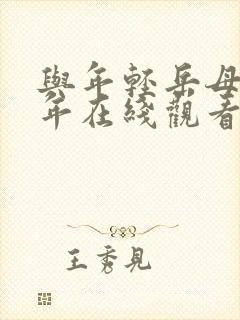 與年輕岳母
年在綫觀看
王秀見